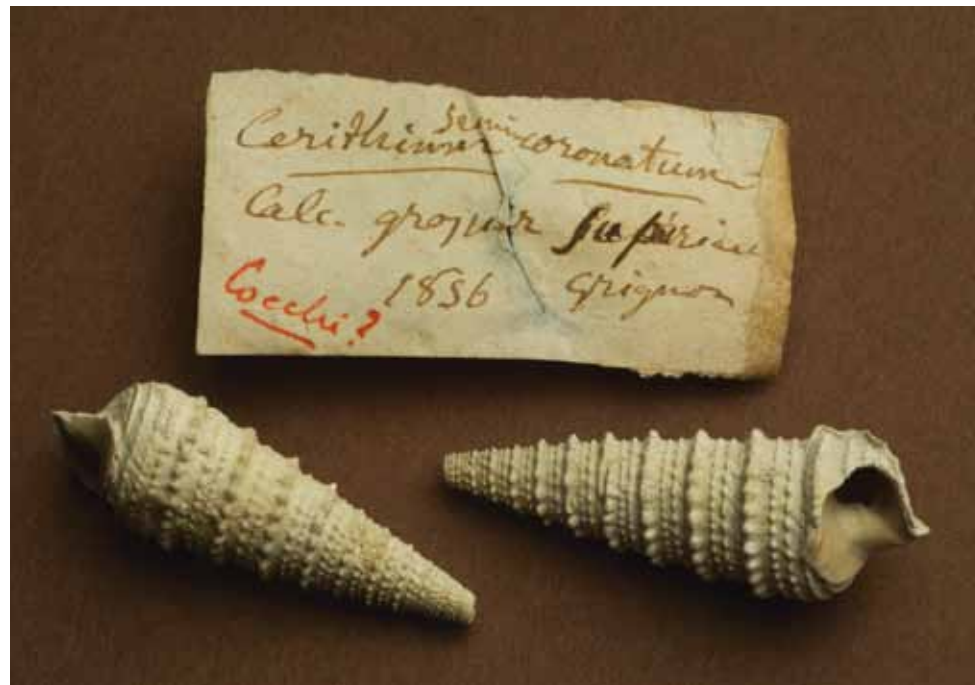 Cerithium semicoronatum
Calc. grossier supérieur
1856 Grignon
Cocchi?